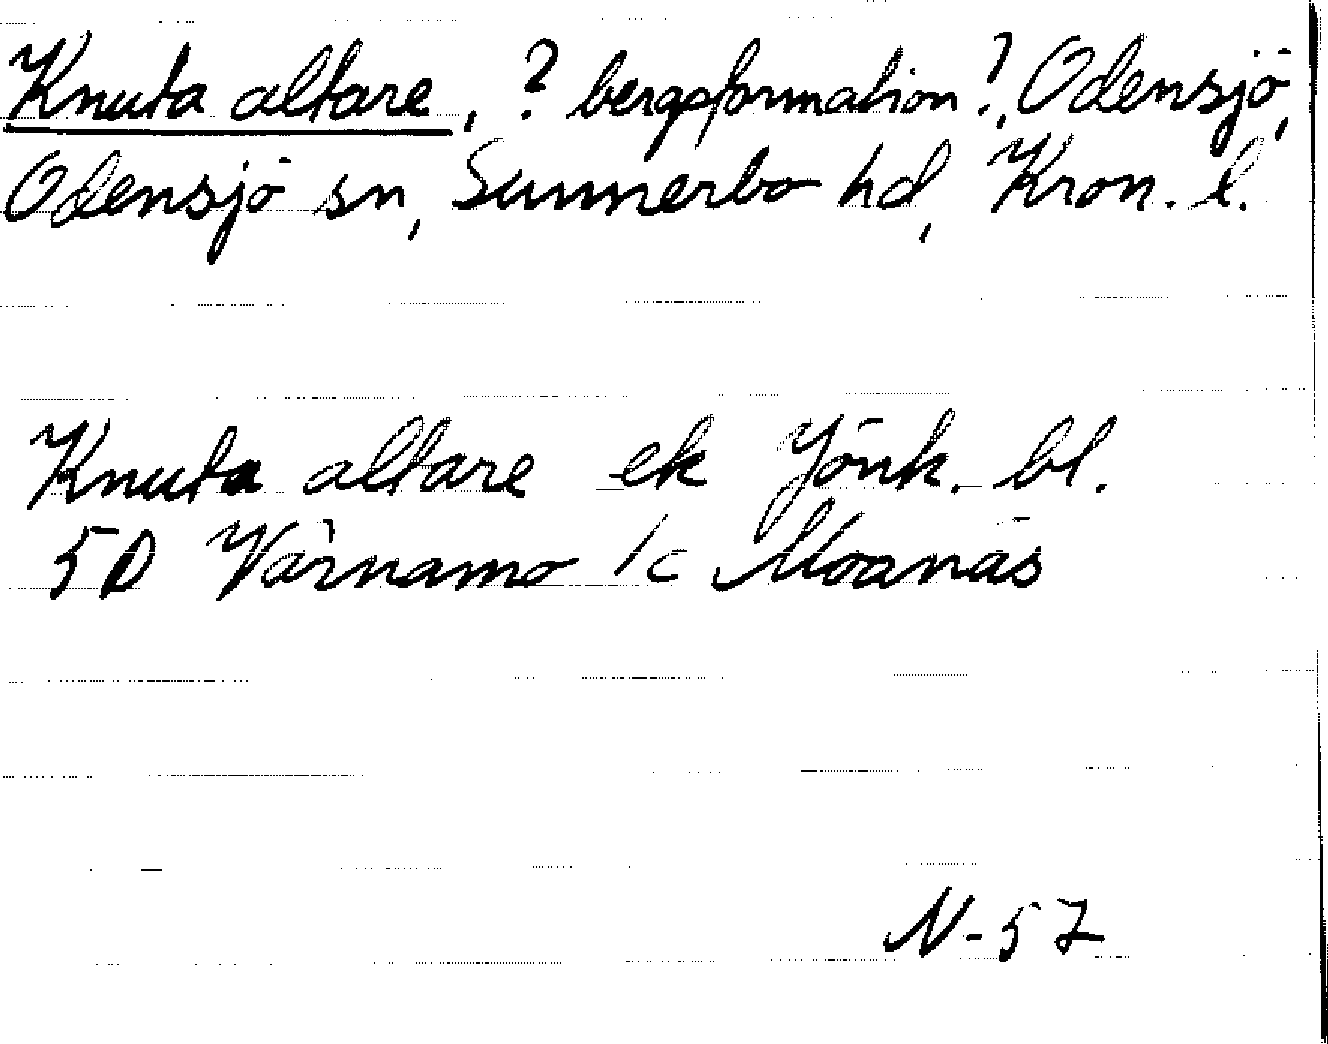 Knuta altare, ? bergsformation ?, Odensjö,
Odensjö sn, Sunnerbo hd, Kron. l.
Knuta altare ek Jönk. bl.
5D Värnamo 1c Moanäs
N-57